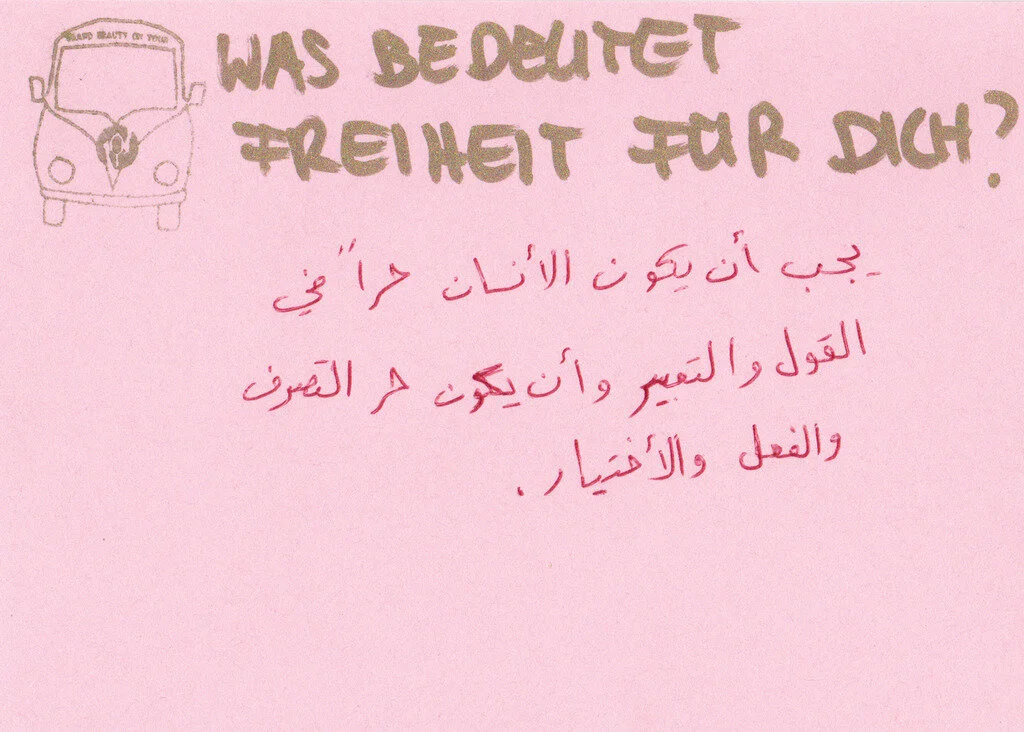 BEAUTY ON TOUR
WAS BEDEUTET
FREIHEIT FÜR DICH?
يجب أن يكون الأنسان حراً في
القول والتعبير وأن يكون حر التصرف
والفعل والأختيار.